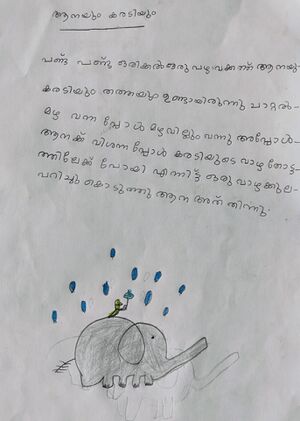 ആനയും കരടിയും
പണ്ട് പണ്ട് ഒരിക്കൽ ഒരു ആനയും
കരടിയും തത്തയും ഉണ്ടായിരുന്നു ചാറ്റൽ-
മഴ വന്നപ്പോൾ മഴവില്ലും വന്നു അപ്പോൾ-
ആനക്ക് വിശന്നപ്പോൾ കരടിയുടെ വാഴ തോട്ട-
ത്തിലേക്ക് പോയി എന്നിട്ട് ഒരു വാഴക്കുല-
പറിച്ചു കൊടുത്തു ആന അത് തിന്നു.